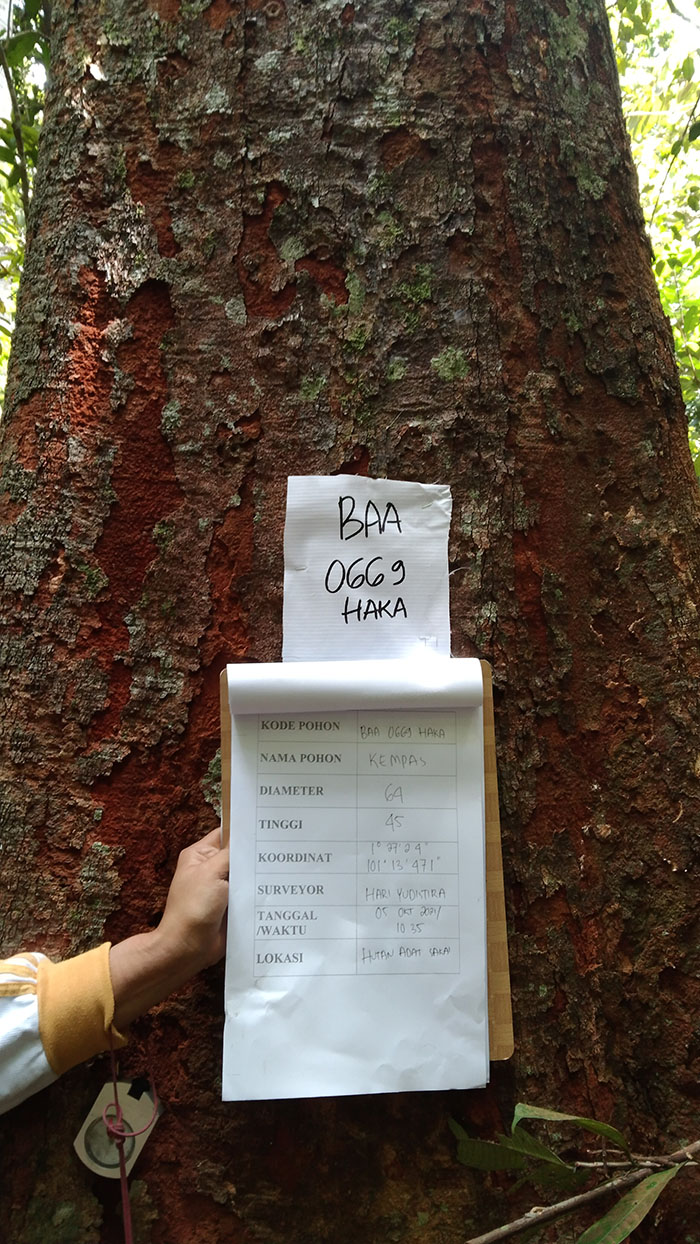 BAA
0669
HAKA
KODE POHON BAA 0669 HAKA
NAMA POHON KEMPAS
DIAMETER 64
TINGGI 45
KOORDINAT 1° 27' 24"
101° 13' 471"
SURVEYOR HARI YUDISTIRA
TANGGAL 05 OKT 2021/
/WAKTU 10 35
LOKASI HUTAN ADAT SAKAI